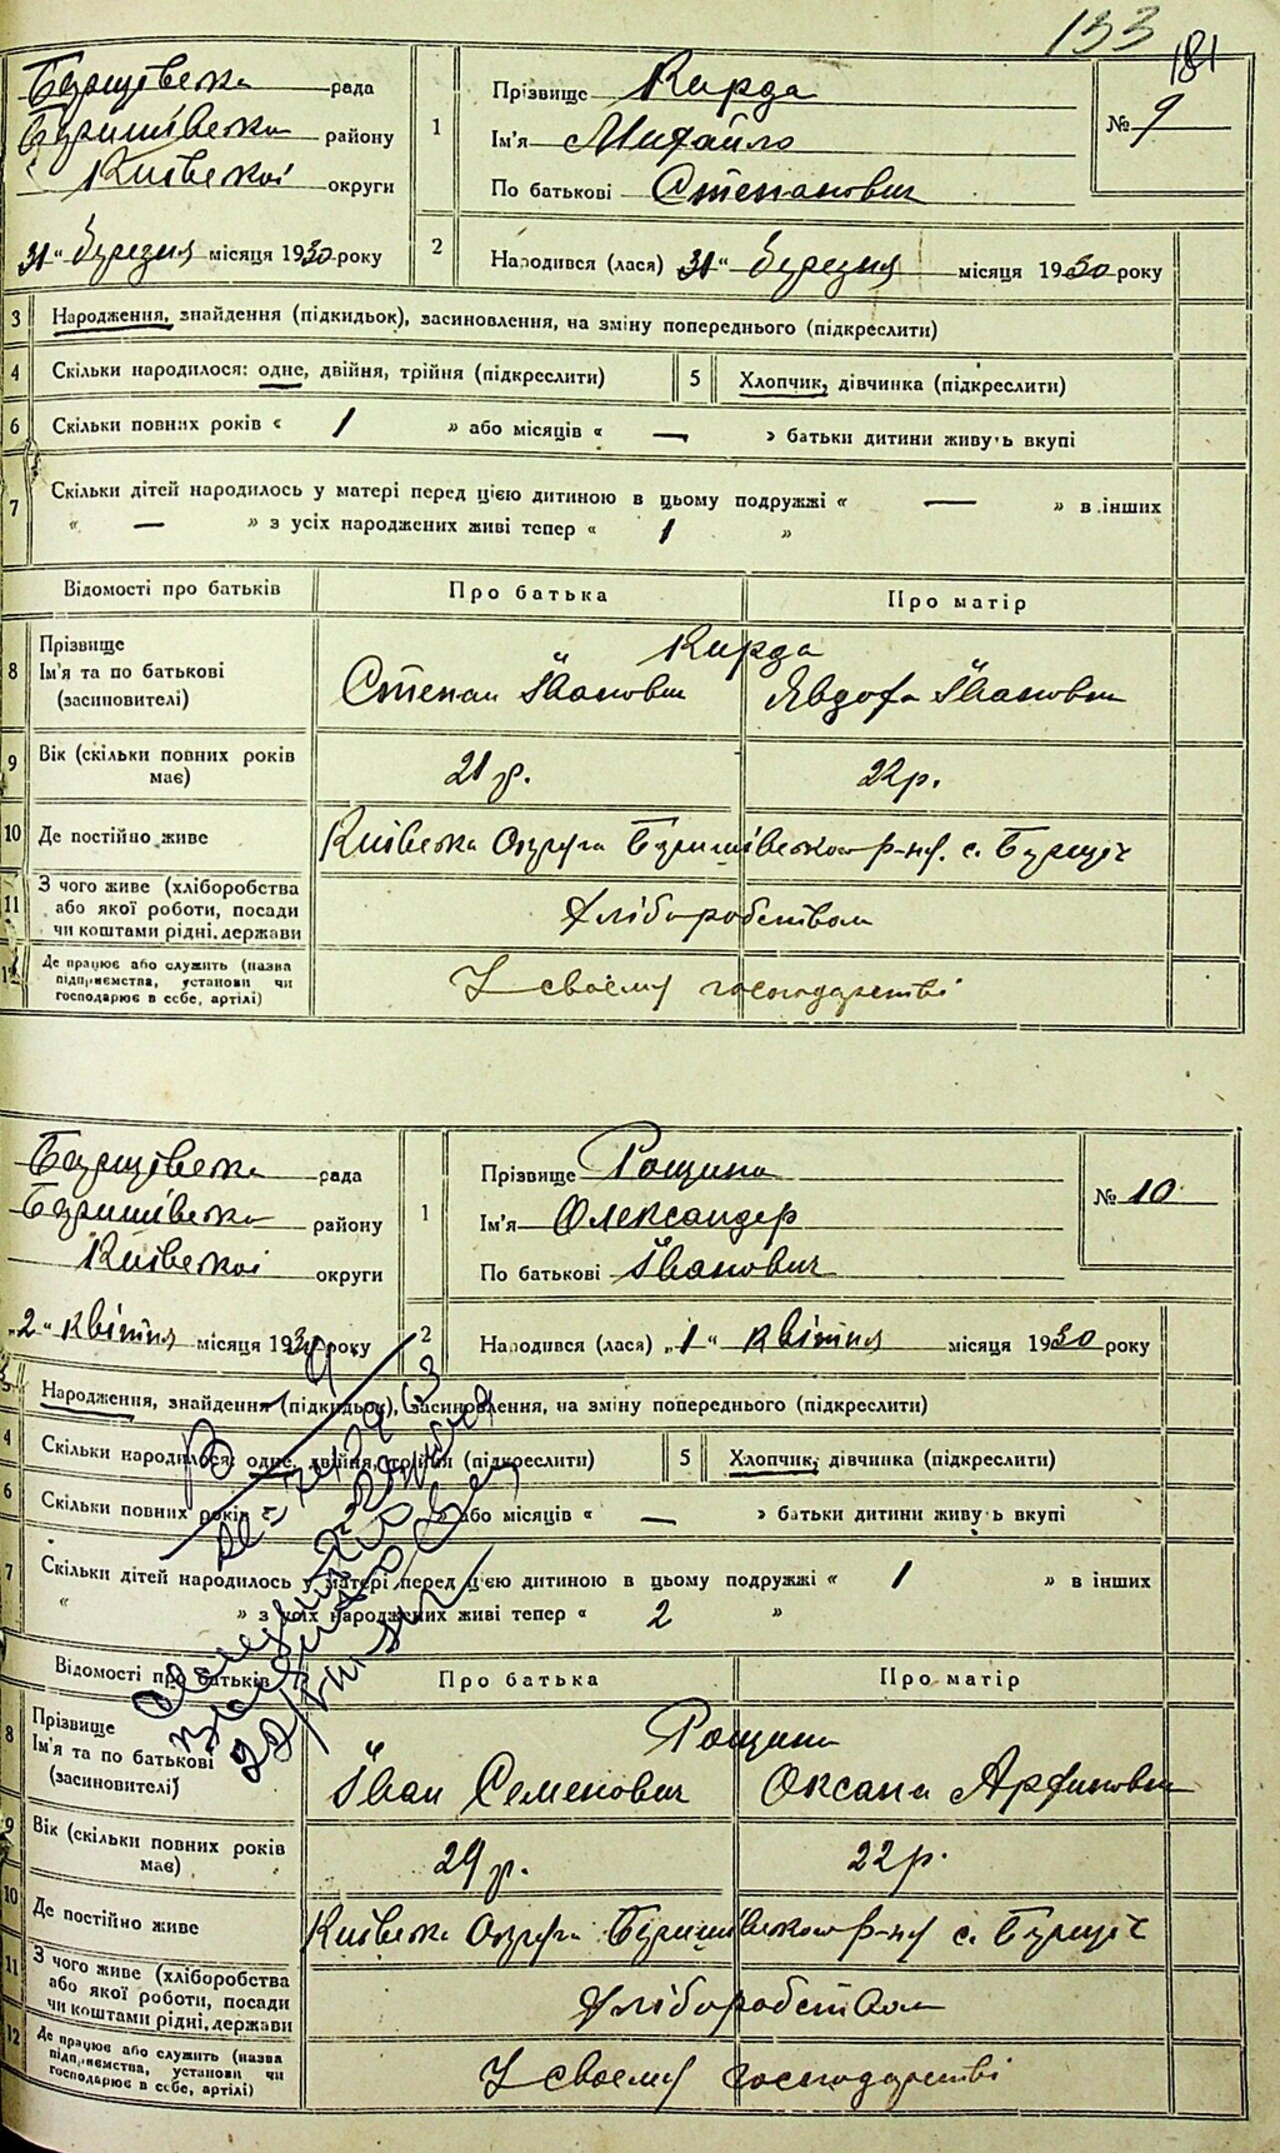 133
181
Бзрщівська рада
Баришівського району
Київської округи
1
Прізвище Кирда
Ім'я Михайло
По батькові Степанович
№ 9
31 " березня місяця 1930 року
2
Народився (лася) 31 " березня місяця 1930 року
3 Народження, знайдення (підкидьок), засиновлення, на зміну попереднього (підкреслити)
4 Скільки народилося: одне, двійня, трійня (підкреслити) 5 Хлопчик, дівчинка (підкреслити)
6 Скільки повних років « 1 » або місяців « — » батьки дитини живуть вкупі
7 Скільки дітей народилось у матері перед цією дитиною в цьому подружжі « — » в інших
« — » з усіх народжених живі тепер « 1 »
Відомості про батьків Про батька Про матір
8 Прізвище
Ім'я та по батькові
(засиновителі)
Кирда
Степан Іванович Явдоха Івановна
9 Вік (скільки повних років має) 21 р. 22 р.
10 Де постійно живе Київська Округа с.
11 З чого живе (хліборобства
або якої роботи, посади
чи коштами рідні, держави
Хліборобством
12 Де працює або служить (назва
підприємства, установи чи
господарює в себе, артілі)
У своєму господарстві
рада
району
Київської округи
1
Прізвище Рощина
Ім'я Олександер
По батькові Іванович
№ 10
„2" квітня місяця 1930 року
2
Народився (лася) „1" квітня місяця 1930 року
3 Народження, знайдення (підкидьок), засиновлення, на зміну попереднього (підкреслити)
4 Скільки народилося: одне, двійня, трійня (підкреслити) 5 Хлопчик, дівчинка (підкреслити)
6 Скільки повних років « » або місяців « — » батьки дитини живуть вкупі
7 Скільки дітей народилось у матері перед цією дитиною в цьому подружжі « 1 » в інших
« » з усіх народжених живі тепер « 2 »
Відомості про батьків Про батька Про матір
8 Прізвище
Ім'я та по батькові
(засиновителі)
Рощина
Іван Семенович Оксана
9 Вік (скільки повних років має) 29 р. 22 р.
10 Де постійно живе Київська Округа с.
11 З чого живе (хліборобства
або якої роботи, посади
чи коштами рідні, держави
Хліборобством
12 Де працює або служить (назва
підприємства, установи чи
господарює в себе, артілі)
У своєму господарстві